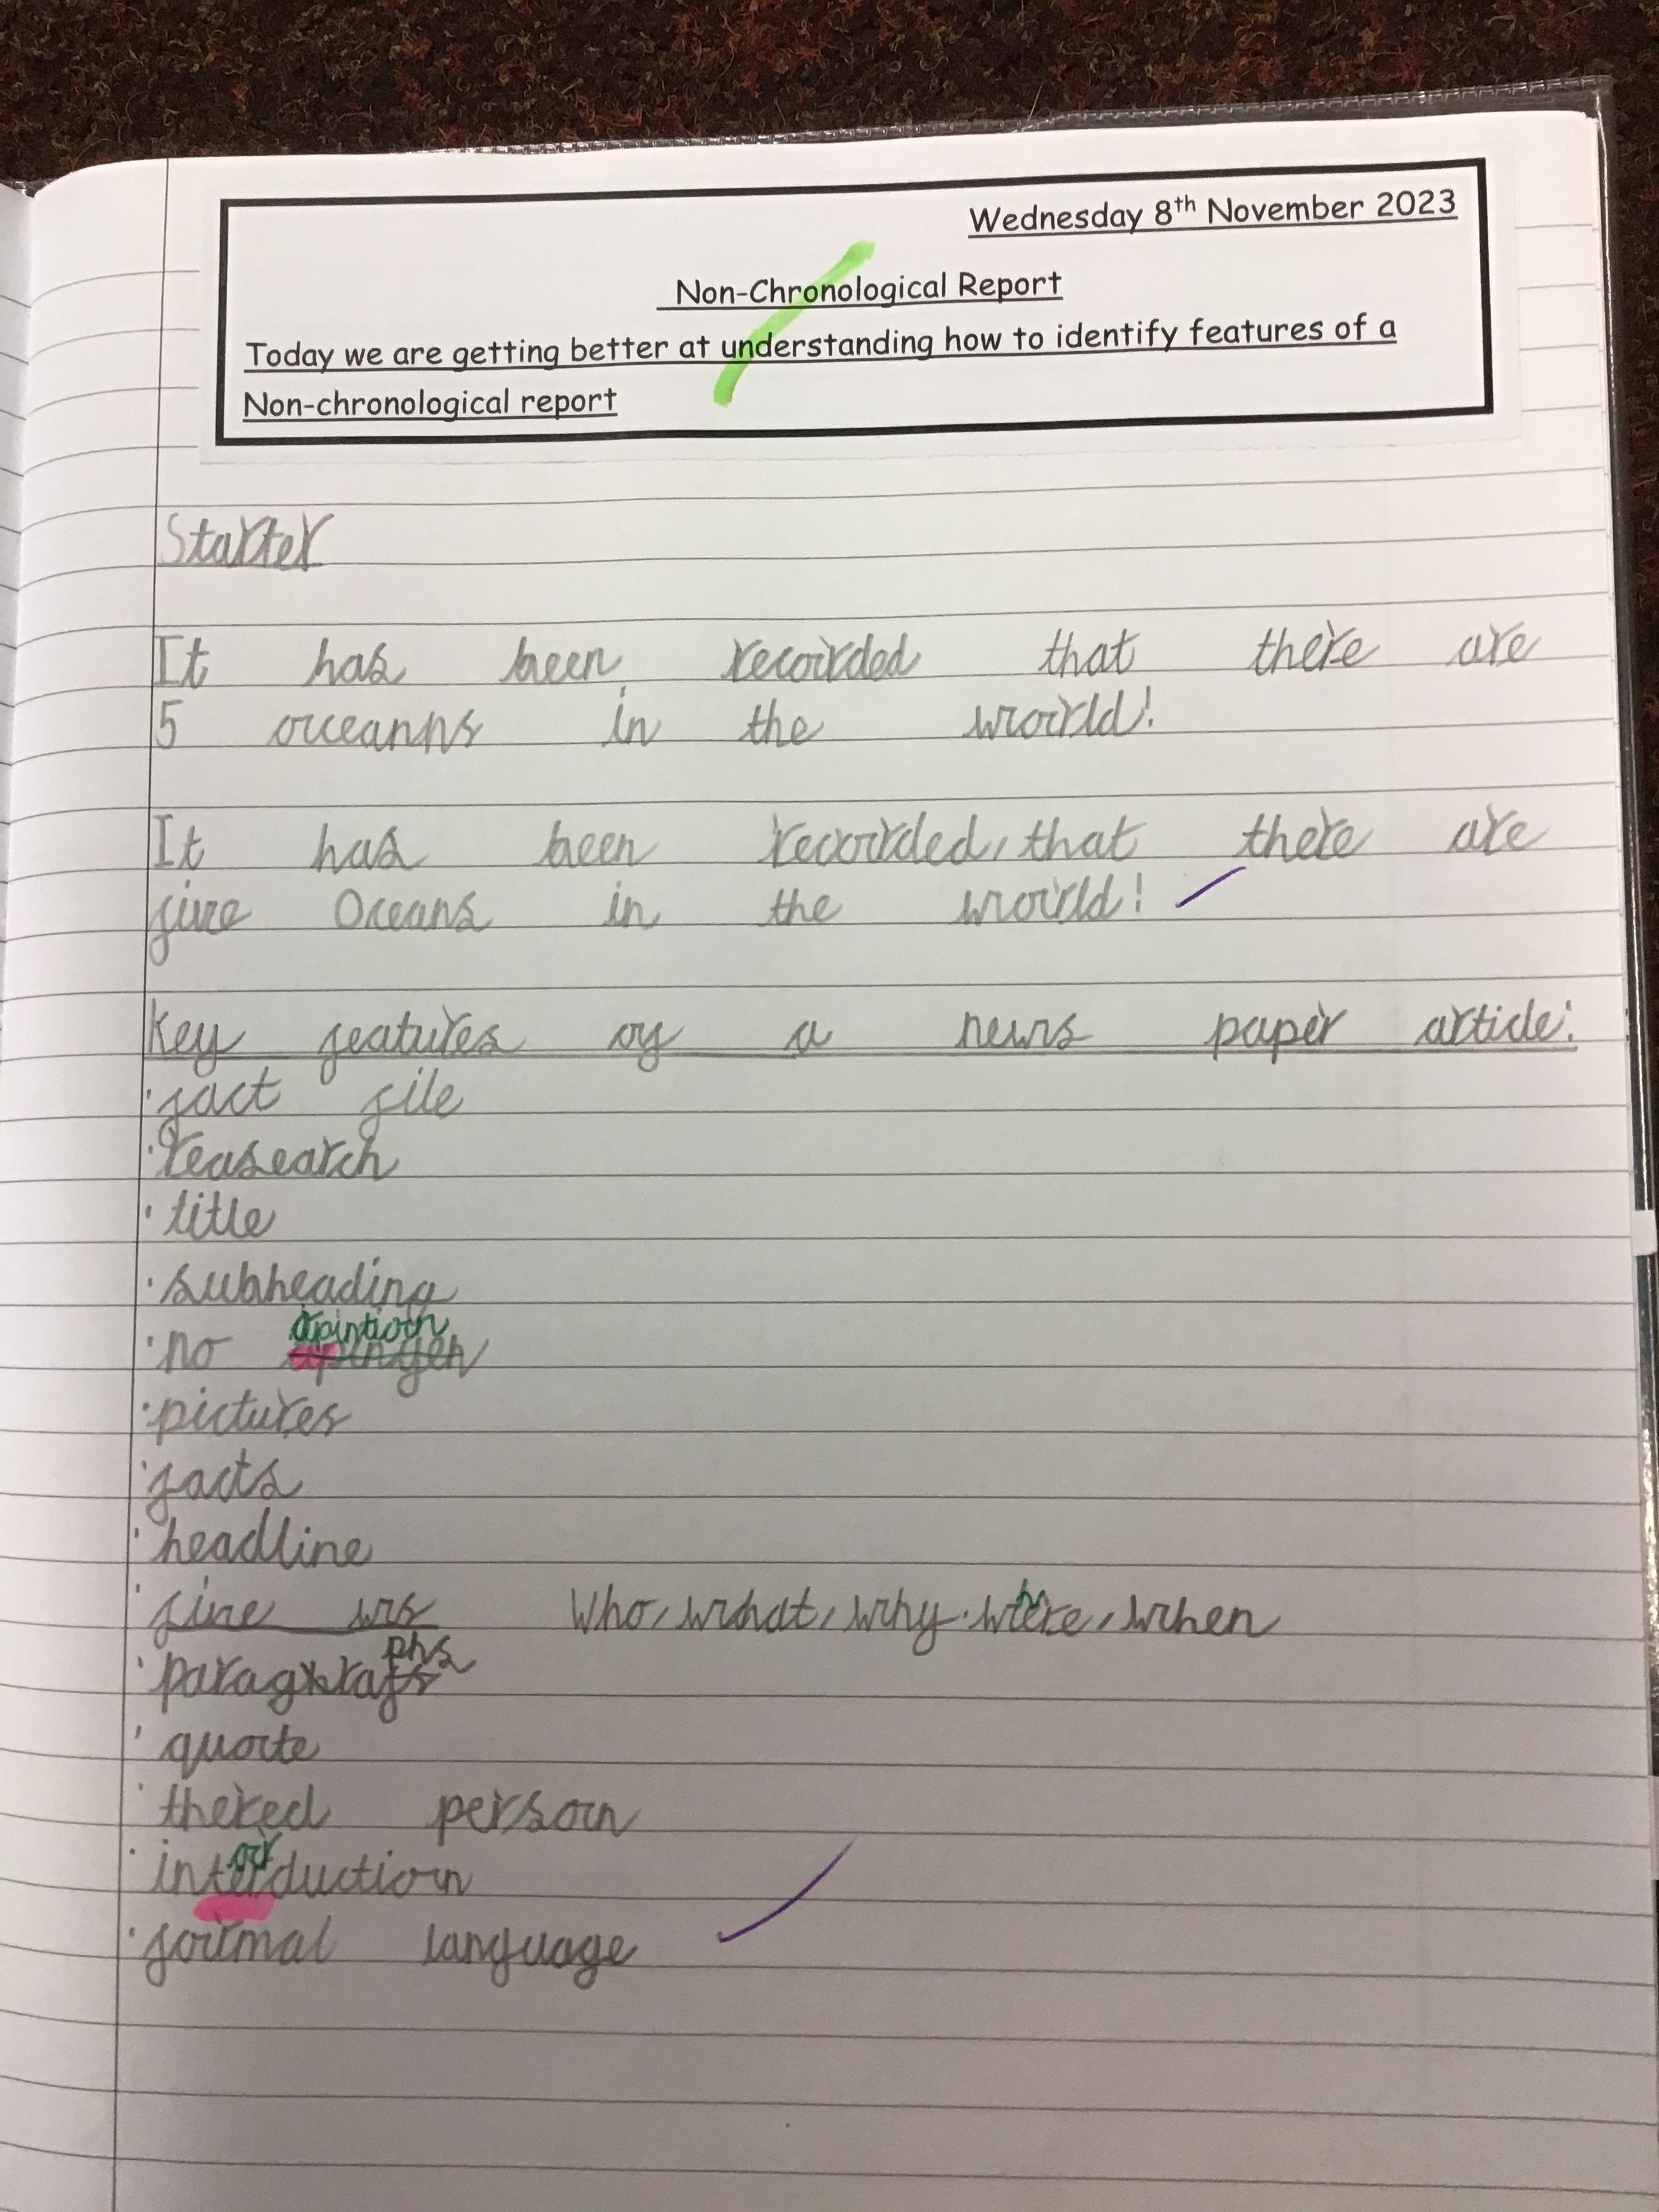 Wednesday 8th November 2023
Non-Chronological Report
Today we are getting better at understanding how to identify features of a
Non-chronological report
Starter
It has been recorded that there are
5 oceanns in the world!
It has been recorded, that there are
five Oceans in the world!
Key features of a news paper article:
· fact file
· reasearch
· title
· subheading
opintion
· no
· pictures
· facts
· headline
· five ws Who, what, why. where, when
phs
· paragrafs
· quote
· thered person
or
· interduction
· formal language